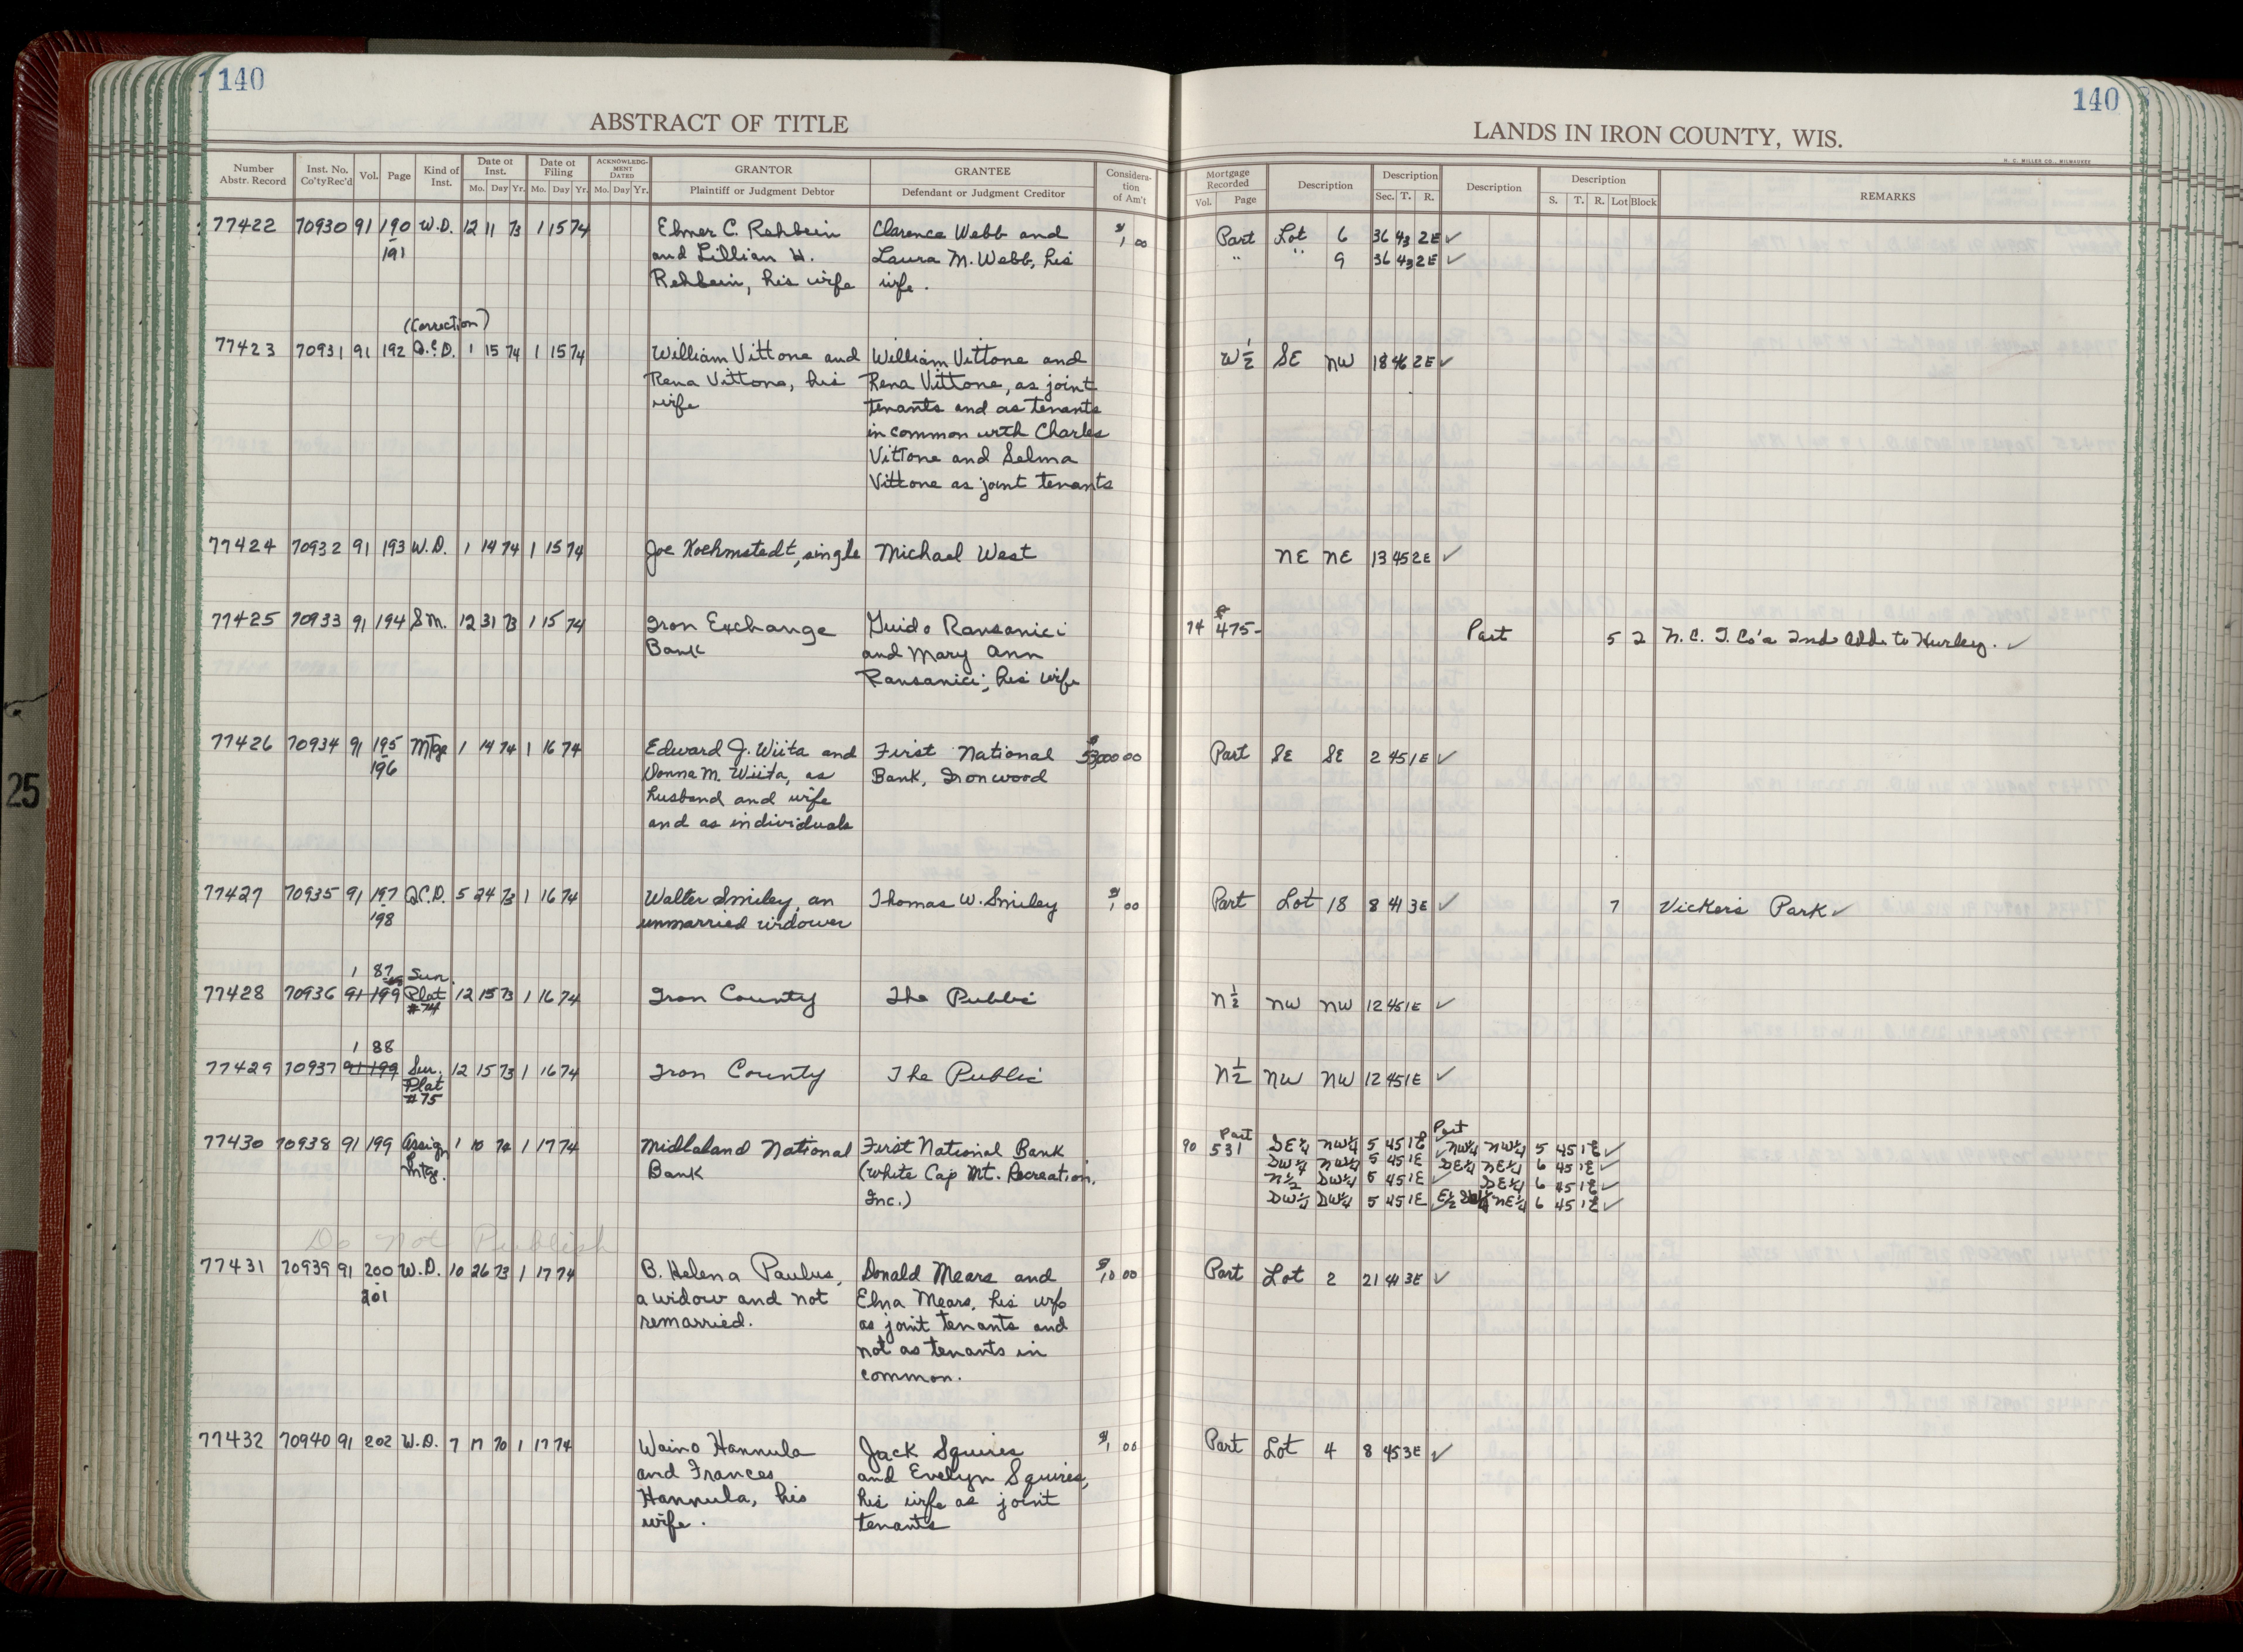 140
ABSTRACT OF TITLE
Number Abstr. Record | Inst. No. Co'ty Rec'd | Vol. | Page | Kind of Inst. | Date of Inst. Mo. Day Yr. | Date of Filing Mo. Day Yr. | ACKNOWLEDGMENT DATED Mo. Day Yr. | GRANTOR Plaintiff or Judgment Debtor | GRANTEE Defendant or Judgment Creditor | Consideration of Am't
77422 70930 91 190 W.D. 12 11 73 1 15 74 Elmer C. Rehbein Clarence Webb and $1 00
191 and Lillian H. Laura M. Webb, his
Rehbein, his wife wife.
(Correction)
77423 70931 91 192 Q.C.D. 1 15 74 1 15 74 William Vittone and William Vittone and
Rena Vittone, his Rena Vittone, as joint
wife tenants and as tenants
in common with Charles
Vittone and Selma
Vittone as joint tenants
77424 70932 91 193 W.D. 1 14 74 1 15 74 Joe Koehmstedt, single Michael West
77425 70933 91 194 S.M. 12 31 73 1 15 74 Iron Exchange Guido Ransanici
Bank and Mary Ann
Ransanici, his wife
77426 70934 91 195 Mtge 1 14 74 1 16 74 Edward J. Wiita and First National 00
196 Donna M. Wiita, as Bank, Ironwood
husband and wife
and as individuals
77427 70935 91 197 Q.C.D. 5 24 73 1 16 74 Walter Smiley, an Thomas W. Smiley $1 00
198 unmarried widower
1 87 Sur.
77428 70936 91 199 Plat 12 15 73 1 16 74 Iron County The Public
#74
1 88
77429 70937 91 199 Sur. 12 15 73 1 16 74 Iron County The Public
Plat
#75
77430 70938 91 199 Assign 1 10 74 1 17 74 Midlaland National First National Bank
Mtg. Bank (White Cap Mt. Recreation,
Inc.)
Do Not Publish
77431 70939 91 200 W.D. 10 26 73 1 17 74 B. Helena Paulus, Donald Mears and $10 00
201 a widow and not Elna Mears, his wife
remarried. as joint tenants and
not as tenants in
common.
77432 70940 91 202 W.D. 7 17 70 1 17 74 Waino Hannula Jack Squires $1 00
and Frances and Evelyn Squires,
Hannula, his his wife as joint
wife. tenants
140
LANDS IN IRON COUNTY, WIS.
H. C. MILLER CO., MILWAUKEE
Mortgage Recorded Vol. Page | Description | Description Sec. T. R. | Description | Description S. T. R. Lot Block | REMARKS
Part Lot 6 36 43 2E ✓
" " 9 36 43 2E ✓
W½ SE NW 18 46 2E ✓
NE NE 13 45 2E ✓
74 475- Part 5 2 N.C. I. Co's 2nd Add. to Hurley. ✓
Part SE SE 2 45 1E ✓
Part Lot 18 8 41 3E ✓ 7 Vickers Park ✓
N½ NW NW 12 45 1E ✓
N½ NW NW 12 45 1E ✓
Part Part
90 531 SE¼ NW¼ 5 45 1E ✓ NW¼ NW¼ 5 45 1E ✓
SW¼ NW¼ 5 45 1E SE¼ NE¼ 6 45 1E ✓
N½ SW¼ 5 45 1E ✓ SE¼ 6 45 1E ✓
SW¼ SW¼ 5 45 1E E½ NE¼ 6 45 1E ✓
Part Lot 2 21 41 3E ✓
Part Lot 4 8 45 3E ✓
25